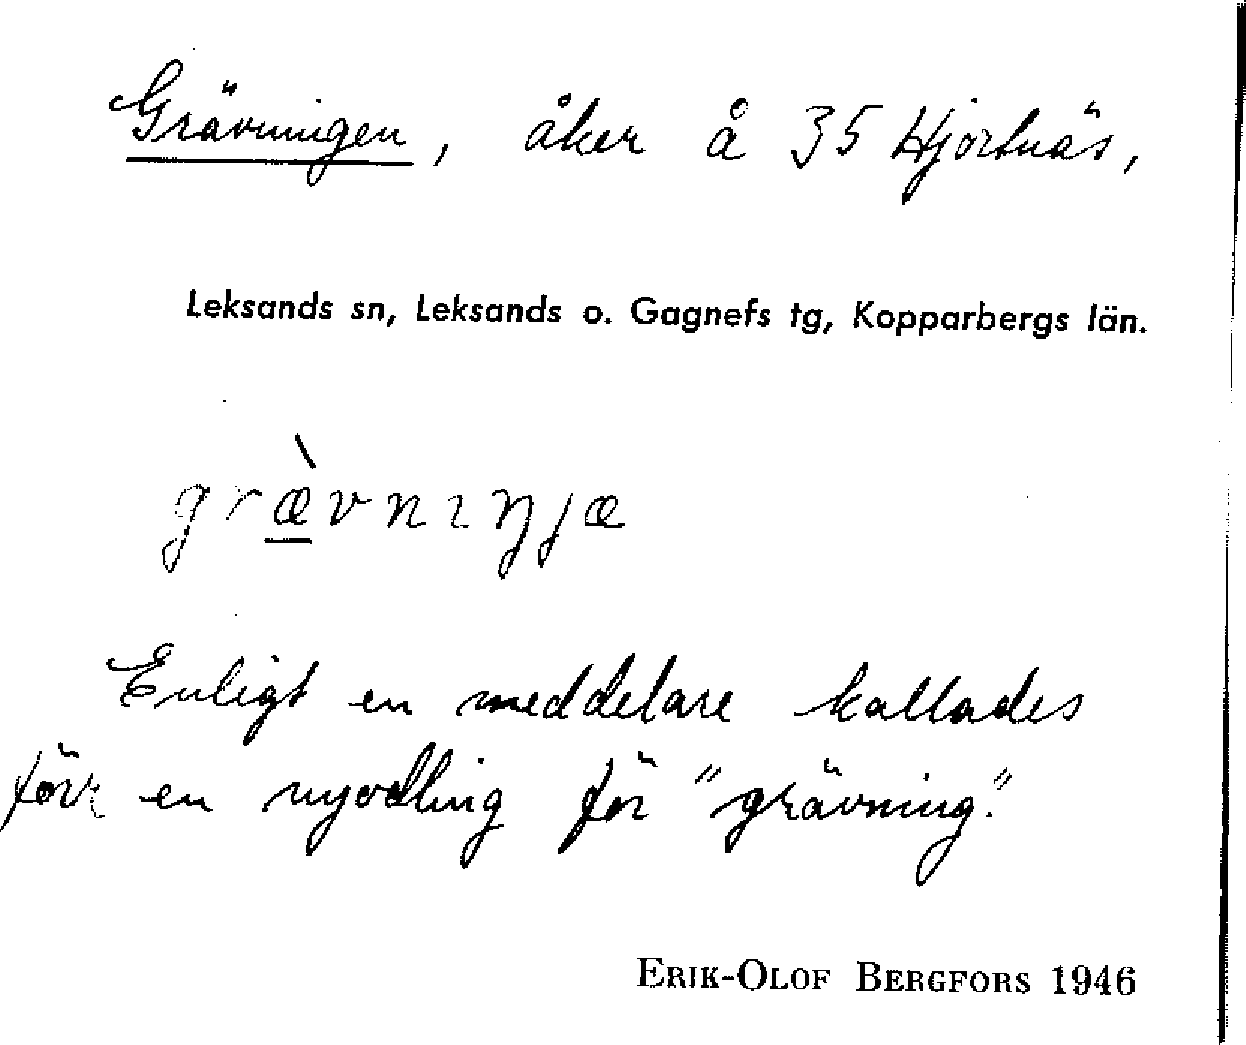 Grävningen, åker å 35 Hjortnäs,
Leksands sn, Leksands o. Gagnefs tg, Kopparbergs län.
græ̀vnıŋjæ
Enligt en meddelare kallades
förr en nyodling för "grävning."
ERIK-OLOF BERGFORS 1946